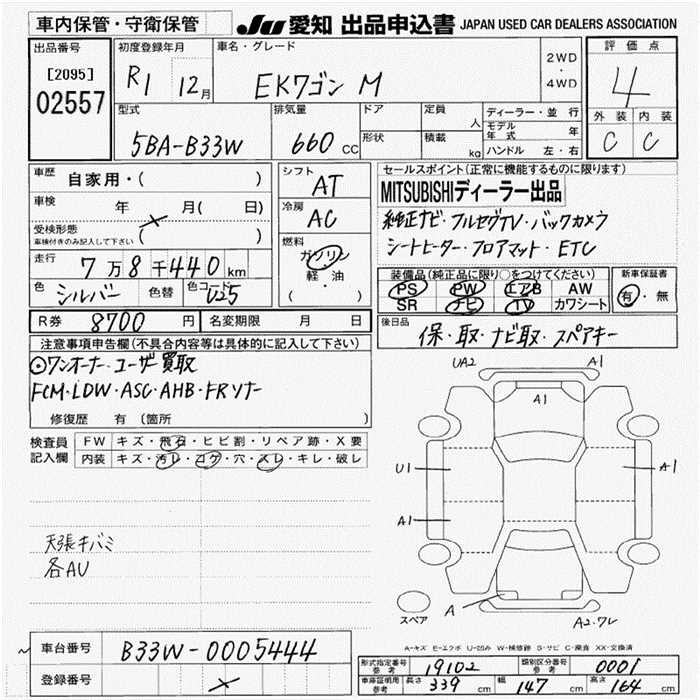 車内保管・守衛保管
JU 愛知 出品申込書 JAPAN USED CAR DEALERS ASSOCIATION
出品番号
[2095]
02557
初度登録年月
R1 12月
車名・グレード
EKワゴン M
2WD
・
4WD
評価点
4
外装 内装
C C
型式
5BA-B33W
排気量
660 CC
ドア
形状
定員
人
積載
kg
ディーラー・並行
モデル年式 年
ハンドル 左・右
車歴 自家用・( )
車検 年 月( 日)
受検形態
車検付きのみ記入して下さい ( )
走行 7万8千440km
色 シルバー 色替 色コード U25
シフト
AT
冷房
AC
燃料
ガソリン
軽・油
( )
セールスポイント(正常に機能するものに限ります)
MITSUBISHIディーラー出品
純正ナビ・フルセグTV・バックカメラ
シートヒーター・フロアマット・ETC
装備品(純正品に限り○をつけてください)
PS PW エアB AW
SR ナビ TV カワシート
新車保証書
有・無
R券 8700円 名変期限 月 日
後日品
保・取・ナビ取・スペアキー
注意事項申告欄(不具合内容等は具体的に記入して下さい)
⊙ワンオーナー・ユーザー買取
FCM・LDW・ASC・AHB・FRソナー
修復歴 有 (箇所 )
検査員記入欄
FW キズ・飛石・ヒビ割・リペア跡・X要
内装 キズ・汚レ・コゲ・穴・スレ・キレ・破レ
天張キバミ
各AU
UA2
A1
A1
U1
A1
A1
A
A2.ワレ
スペア
A-キズ E-エクボ U-凹み W-補修跡 S-サビ C-腐食 XX-交換済
車台番号 B33W-0005444
登録番号
形式指定番号 参考 19102 類別区分番号 参考 0001
車庫証明用 参考 長さ 339 cm 幅 147 cm 高さ 164 cm